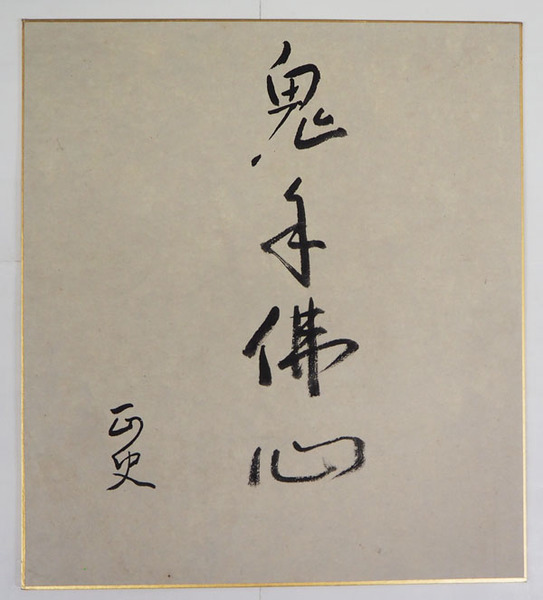 鬼手佛心
正史